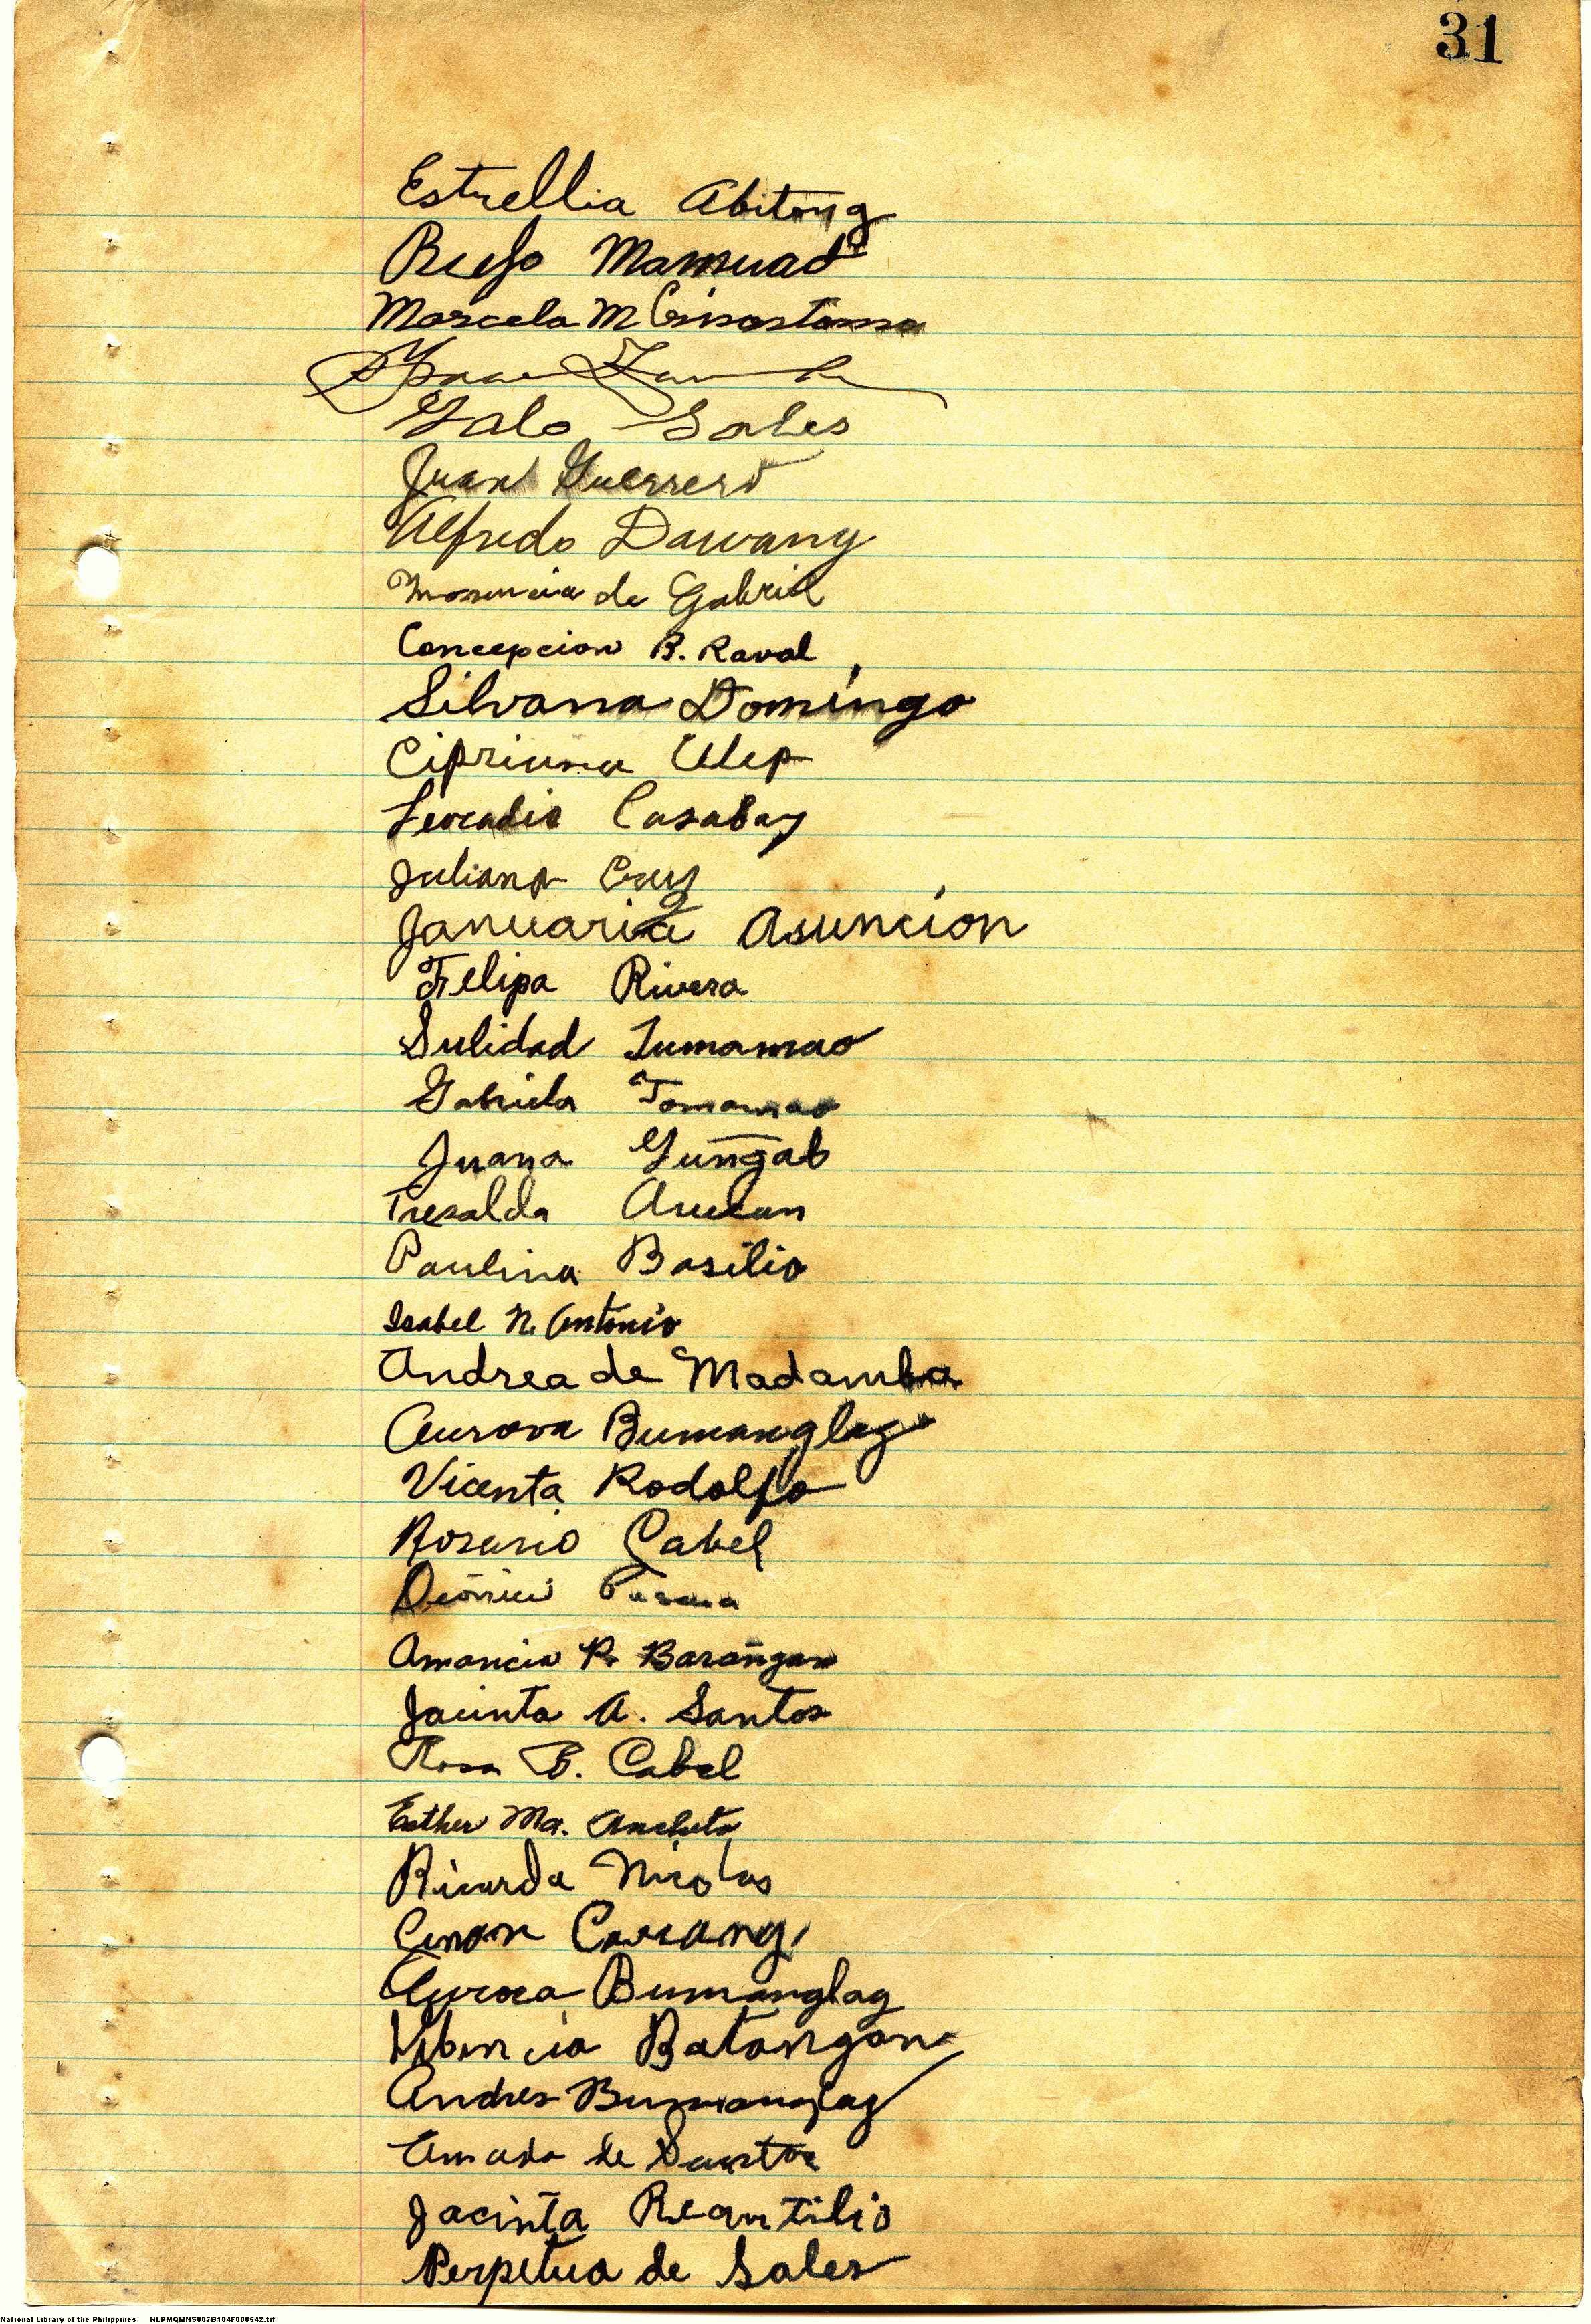 31
Estrellia Abitong
Rufo Mamuad
Marcela M Crisostomo
Galo Sales
Juan Guerrero
Alfredo Dawang
de Gabriel
Concepcion B. Raval
Silvana Domingo
Cipriana Ulep
Leocadio Casabay
Juliana Cruz
Januaria Asuncion
Felipa Rivera
Sulidad Tumamao
Gabriela Tomamao
Juana Guñgab
Tresalda
Paulina Basilio
Isabel N. Antonio
Andrea de Madamba
Aurora Bumanglag
Vicenta Rodolfo
Rosario Cabel
Amancia R. Barañgan
Jacinta A. Santos
Rosa B. Cabel
Esther Ma. Ancheta
Ricarda Nicolas
Cenon Cavrang
Aurora Bumanglag
Vibencia Batangan
Andres Bumanglag
Amada de Santos
Jacinta Reantilio
Perpetua de Sales
National Library of the Philippines NLPMQMNS007B104F000542.tif